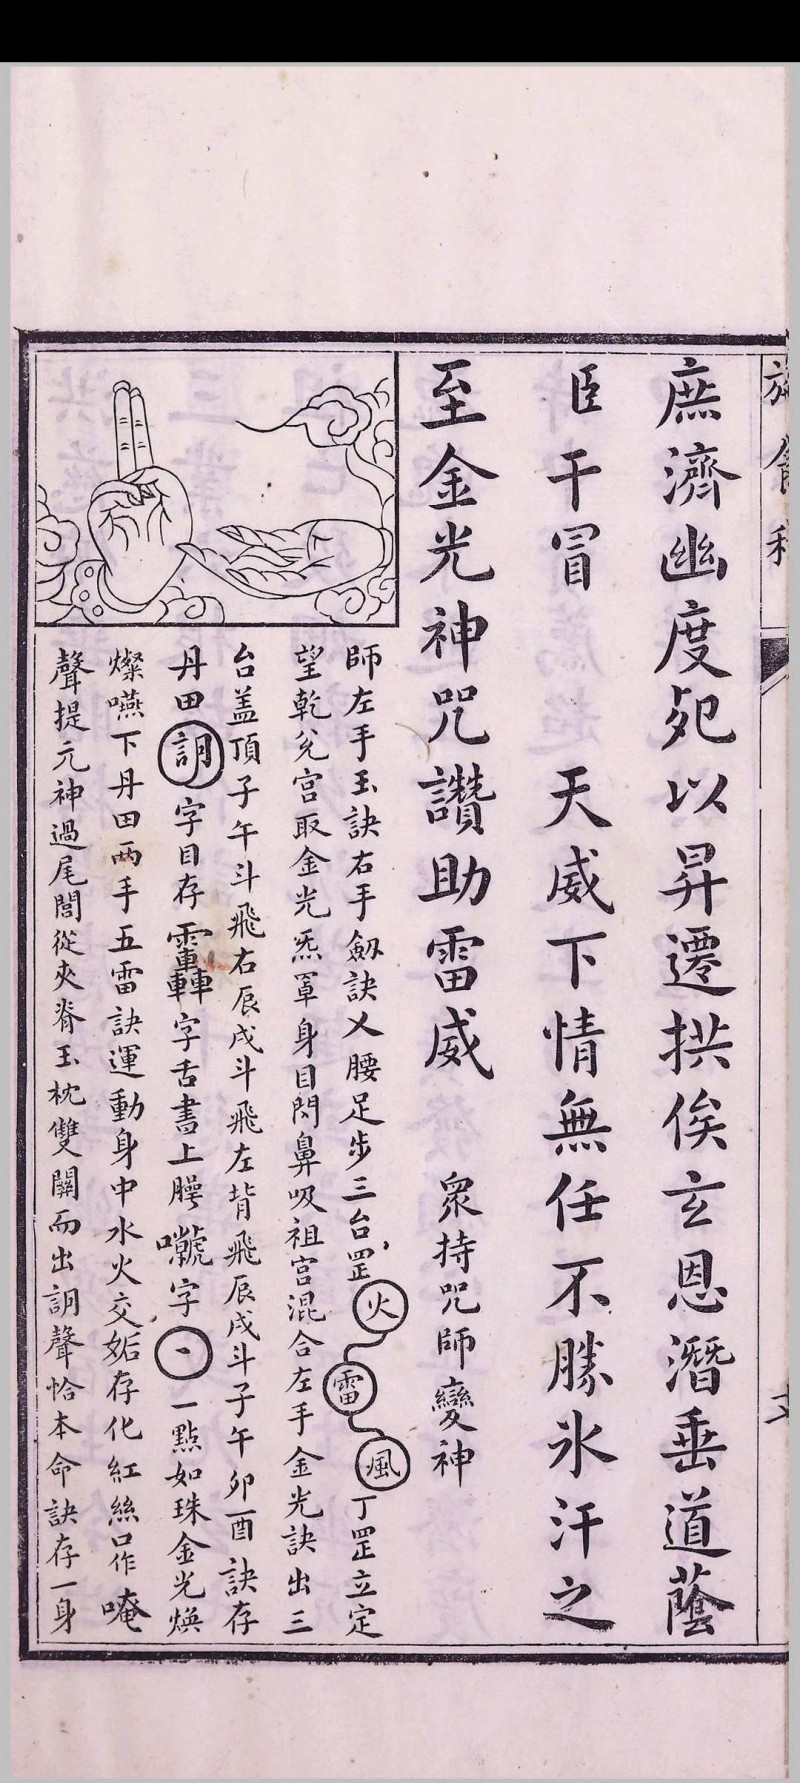 庶濟幽度夗以昇遷拱俟玄恩潛垂道蔭
臣干冒　天威下情無任不勝氷汗之
至金光神咒讚助雷威　眾持咒師變神
師左手玉訣右手劒訣乂腰足步三台罡火雷風丁罡立定
望乾兊宮取金光炁罩身目閃鼻吸祖宮混合左手金光訣出三
台盖頂子午斗飛右辰戌斗飛左背飛辰戌斗子午卯酉訣存
丹田字目存字舌書上腭字丶一點如珠金光煥
燦嚥下丹田两手五雷訣運動身中水火交姤存化紅絲口作唵
聲提元神過尾閭從夾脊玉枕雙關而出聲恰本命訣存一身